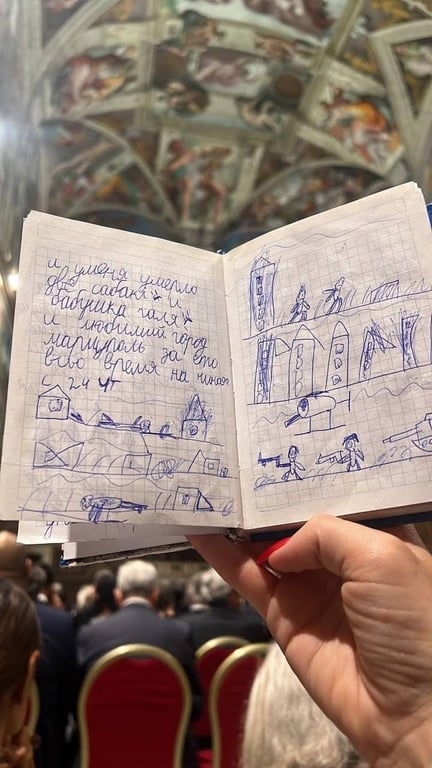 и уменя умерло
две сабаки и
бабушка галя
и любимий город
мариуполь за ето
время на чиная
с 24 чт